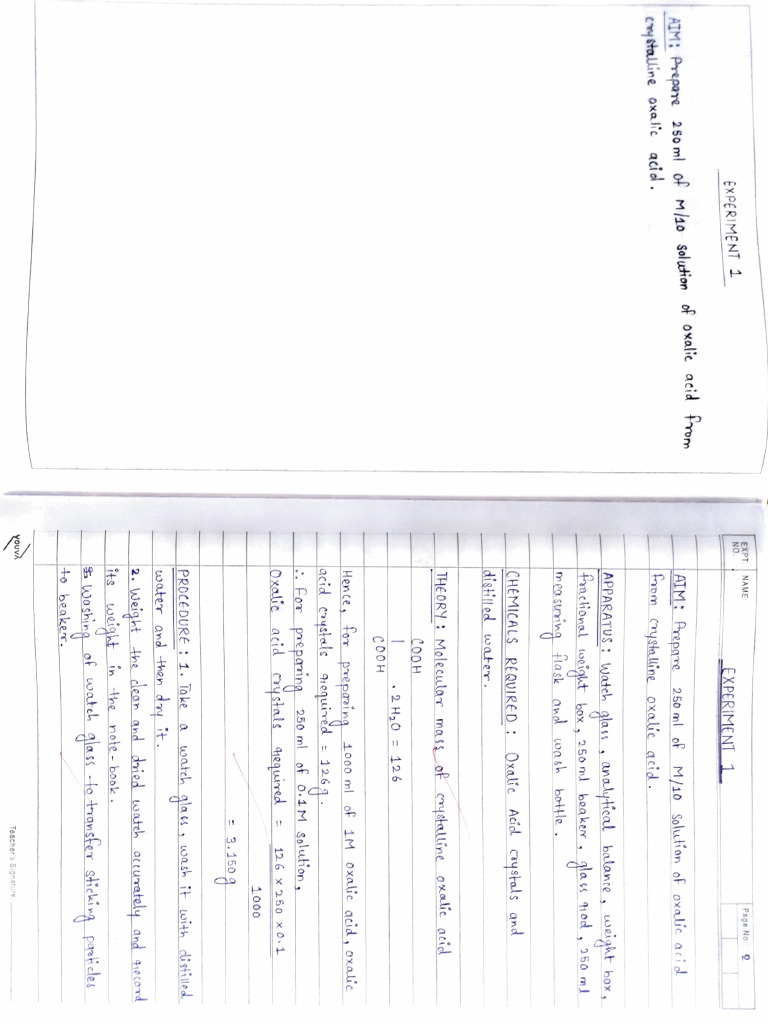 EXPERIMENT 1
AIM: Prepare 250ml of M/10 solution of oxalic acid from
crystalline oxalic acid.
EXPT. NO.
NAME
EXPERIMENT 1
Page No.
AIM: Prepare 250 ml of M/10 solution of oxalic acid
from crystalline oxalic acid.
APPARATUS: Watch glass, analytical balance, weight box,
fractional weight box, 250 ml beaker, glass rod, 250 ml
measuring flask and wash bottle.
CHEMICALS REQUIRED: Oxalic Acid crystals and
distilled water.
THEORY: Molecular mass of crystalline oxalic acid
COOH
| . 2H₂O = 126
COOH
Hence, for preparing 1000 ml of 1M oxalic acid, oxalic
acid crystals required = 126g.
∴ For preparing 250 ml of 0.1M solution,
Oxalic acid crystals required = 126 x 250 x 0.1
1000
= 3.150g
PROCEDURE: 1. Take a watch glass, wash it with distilled
water and then dry it.
2. Weight the clean and dried watch accurately and record
its weight in the note-book.
Washing of watch glass to transfer sticking particles
to beaker.
youva
Teacher's Signature